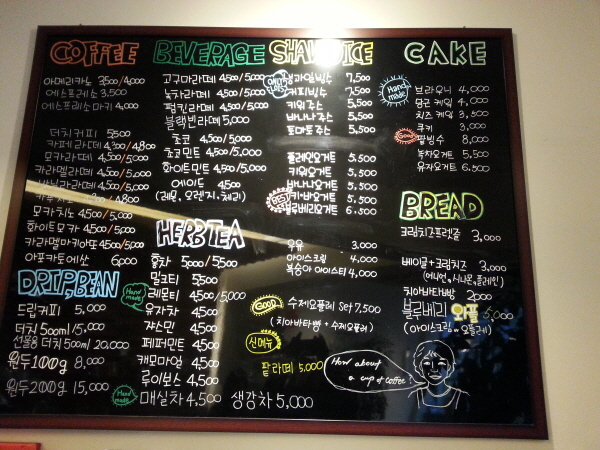 COFFEE
아메리카노 3500/4,000
에스프레소 3,500
에스프레소마키 4,000
더치커피 5,500
카페라떼 4,300/4,800
모카라떼 4500/5,000
카라멜라떼 4500/5,000
바닐라라떼 4500/5,000
4,800
모카치노 4,500/5,000
화이트모카 4500/5,000
카라멜마키아또 4500/5,000
아포카토에산 6,000
DRIP, BEAN
드립커피 5,000
더치 500ml 15,000
선물용 더치 500ml 20,000
원두 100g 8,000
원두 200g 15,000
BEVERAGE
고구마라떼 4500/5,000
녹차라떼 4500/5,000
펌킨라떼 4500/5,000
블랙빈라떼 5,000
초코 4,500/5,000
초코민트 4,500/5,000
화이트민트 4,500/5,000
에이드 4,500
(레몬, 오렌지, 체리)
HERB TEA
홍차 5,000/5,500
밀크티 5,500
Hand made
레몬티 4500/5,000
유자차 4,500
쟈스민 4,500
페퍼민트 4,500
캐모마일 4,500
루이보스 4,500
Hand made
매실차 4,500 생강차 5,000
ICE
과일빙수 7,500
커피빙수 7,500
키위주스 5,500
바나나주스 5,500
토마토주스 5,500
플레인요거트 5,500
키위요거트 5,500
바나나요거트 5,500
BEST
키·바요거트 5,500
블루베리요거트 6,500
우유 3,000
아이스크림 4,000
복숭아 아이스티 4,000
Good
수제요플레 Set 7,500
(치아바타빵 + 수제요플레)
신메뉴
팥라떼 5,000
How about
a cup of coffee?
CAKE
Hand made
브라우니 4,000
당근 케잌 4,000
치즈 케잌 3,500
쿠키 3,000
Good
팥빙수 8,000
녹차요거트 5,500
유자요거트 6,500
BREAD
크림치즈프렛즐 3,000
베이글+크림치즈 3,000
(어니언, 시나몬, 플레인)
치아바타빵 2,000
블루베리 와플 5,000
(아이스크림 or 요플레)